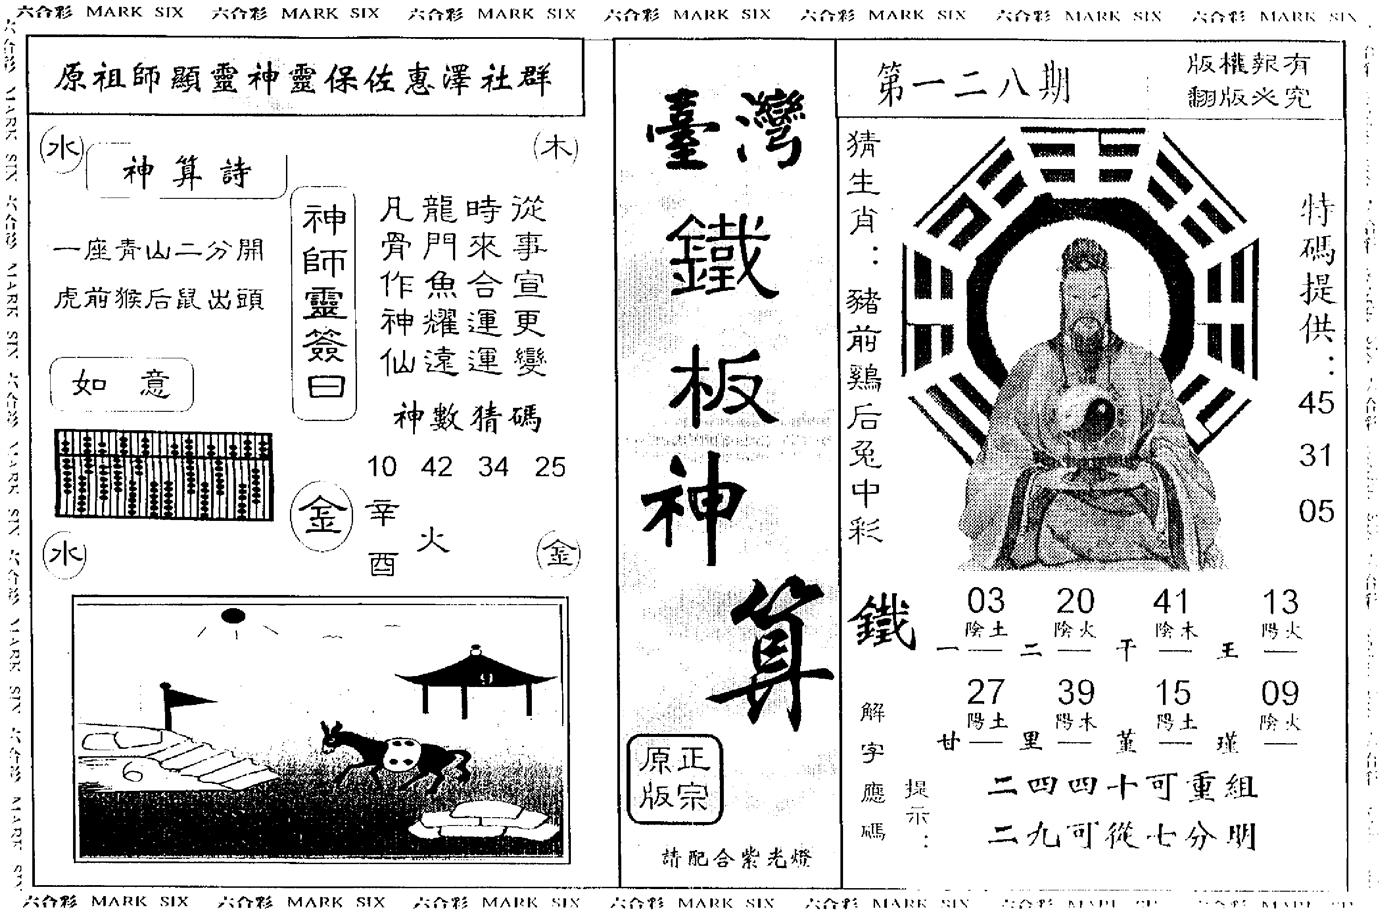 六合彩 MARK SIX 六合彩 MARK SIX 六合彩 MARK SIX 六合彩 MARK SIX 六合彩 MARK SIX 六合彩 MARK SIX 六合彩 MARK SIX
原祖師顯靈神靈保佐惠澤社群
水
木
神算詩
一座青山二分開
虎前猴后鼠出頭
如意
神師靈簽曰
從事宣更變
時來合運運
龍門魚耀遠
凡骨作神仙
神數猜碼
10 42 34 25
金
辛酉
火
水
金
9
6
臺灣
鐵板神算
正宗
原版
請配合紫光燈
第一二八期
版權報有
翻版必究
猜生肖：豬前鷄后兔中彩
特碼提供：
45
31
05
鐵
03 20 41 13
陰土 陰火 陰木 陽火
一 二 干 王
27 39 15 09
陽土 陽木 陽土 陰火
甘 里 堇 瑾
解字應碼
提示：
二四四十可重組
二九可從七分明
六合彩 MARK SIX 六合彩 MARK SIX 六合彩 MARK SIX 六合彩 MARK SIX 六合彩 MARK SIX